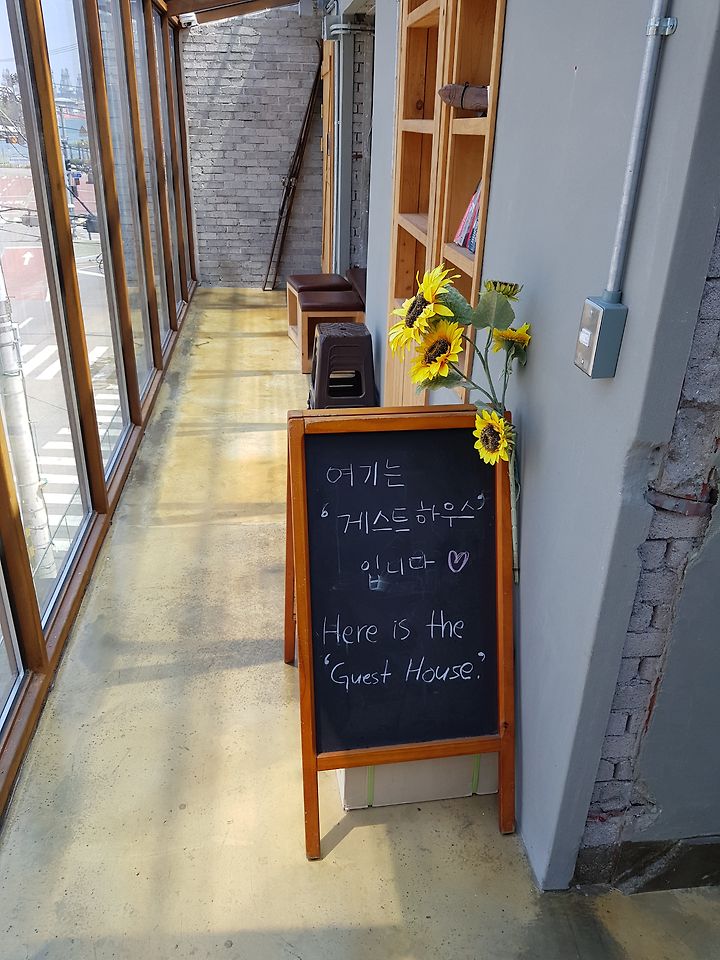 여기는
'게스트하우스'
입니다 ♡
Here is the
'Guest House.'